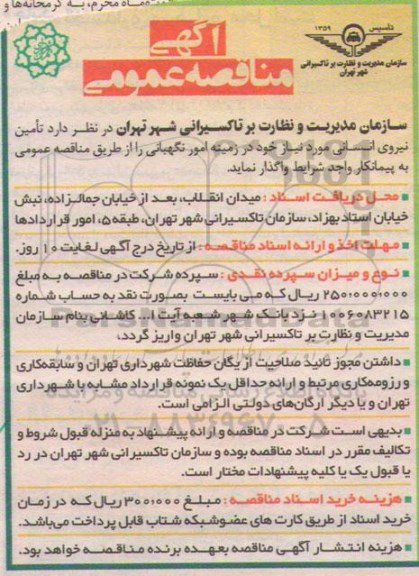 آگهی
مناقصه عمومی
تأسیس ۱۳۵۹
سازمان مدیریت و نظارت بر تاکسیرانی
شهر تهران
سازمان مدیریت و نظارت بر تاکسیرانی شهر تهران در نظر دارد تأمین
نیروی انسانی مورد نیاز خود در زمینه امور نگهبانی را از طریق مناقصه عمومی
به پیمانکار واجد شرایط واگذار نماید.
محل دریافت اسناد : میدان انقلاب، بعد از خیابان جمالزاده، نبش
خیابان استاد بهزاد، سازمان تاکسیرانی شهر تهران، طبقه ۵، امور قراردادها
مهلت اخذ و ارائه اسناد مناقصه : از تاریخ درج آگهی لغایت ۱۰ روز.
نوع و میزان سپرده نقدی : سپرده شرکت در مناقصه به مبلغ
۲۵۰/۰۰۰/۰۰۰ ریال که می بایست بصورت نقد به حساب شماره
۱۰۰۶۰۸۳۲۱۵ نزد بانک شهر شعبه آیت ا... کاشانی بنام سازمان
مدیریت و نظارت بر تاکسیرانی شهر تهران واریز گردد.
داشتن مجوز تائید صلاحیت از یگان حفاظت شهرداری تهران و سابقه‌کاری
و رزومه‌کاری مرتبط و ارائه حداقل یک نمونه قرارداد مشابه با شهرداری
تهران و یا دیگر ارگان‌های دولتی الزامی است.
بدیهی است شرکت در مناقصه و ارائه پیشنهاد به منزله قبول شروط و
تکالیف مقرر در اسناد مناقصه بوده و سازمان تاکسیرانی شهر تهران در رد
یا قبول یک یا کلیه پیشنهادات مختار است.
هزینه خرید اسناد مناقصه : مبلغ ۳۰۰/۰۰۰ ریال که در زمان
خرید اسناد از طریق کارت های عضو شبکه شتاب قابل پرداخت می‌باشد.
هزینه انتشار آگهی مناقصه بعهده برنده مناقصه خواهد بود.